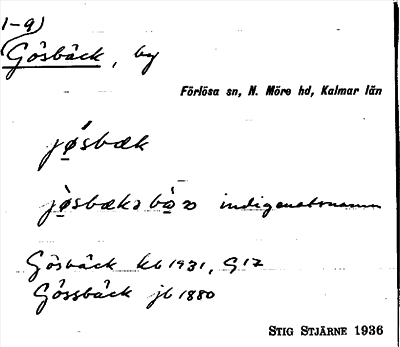 1-9)
Gösbäck, by
Förlösa sn, N. Möre hd, Kalmar län
jǿsbæk
indigenatsnamn
Gösbäck kb 1931, G 17
Gössbäck jb 1880
STIG STJÄRNE 1936